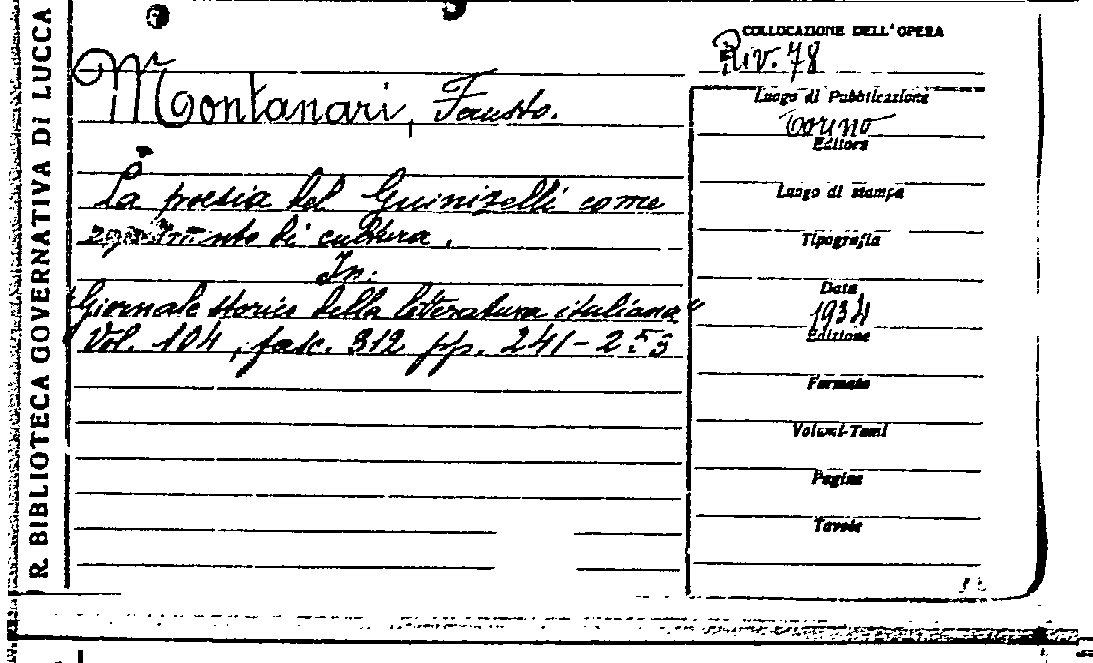 R. BIBLIOTECA GOVERNATIVA DI LUCCA
COLLOCAZIONE DELL'OPERA
Riv. 78
Montanari, Fausto.
Luogo di Pubblicazione
Torino
Editore
La poesia del Guinizelli come
Luogo di stampa
di cultura.
Tipografia
In:
Data
"Giornale storico della letteratura italiana"
1934
Vol. 104, fasc. 312 pp. 241-253
Edizione
Formato
Volumi-Tomi
Pagine
Tavole